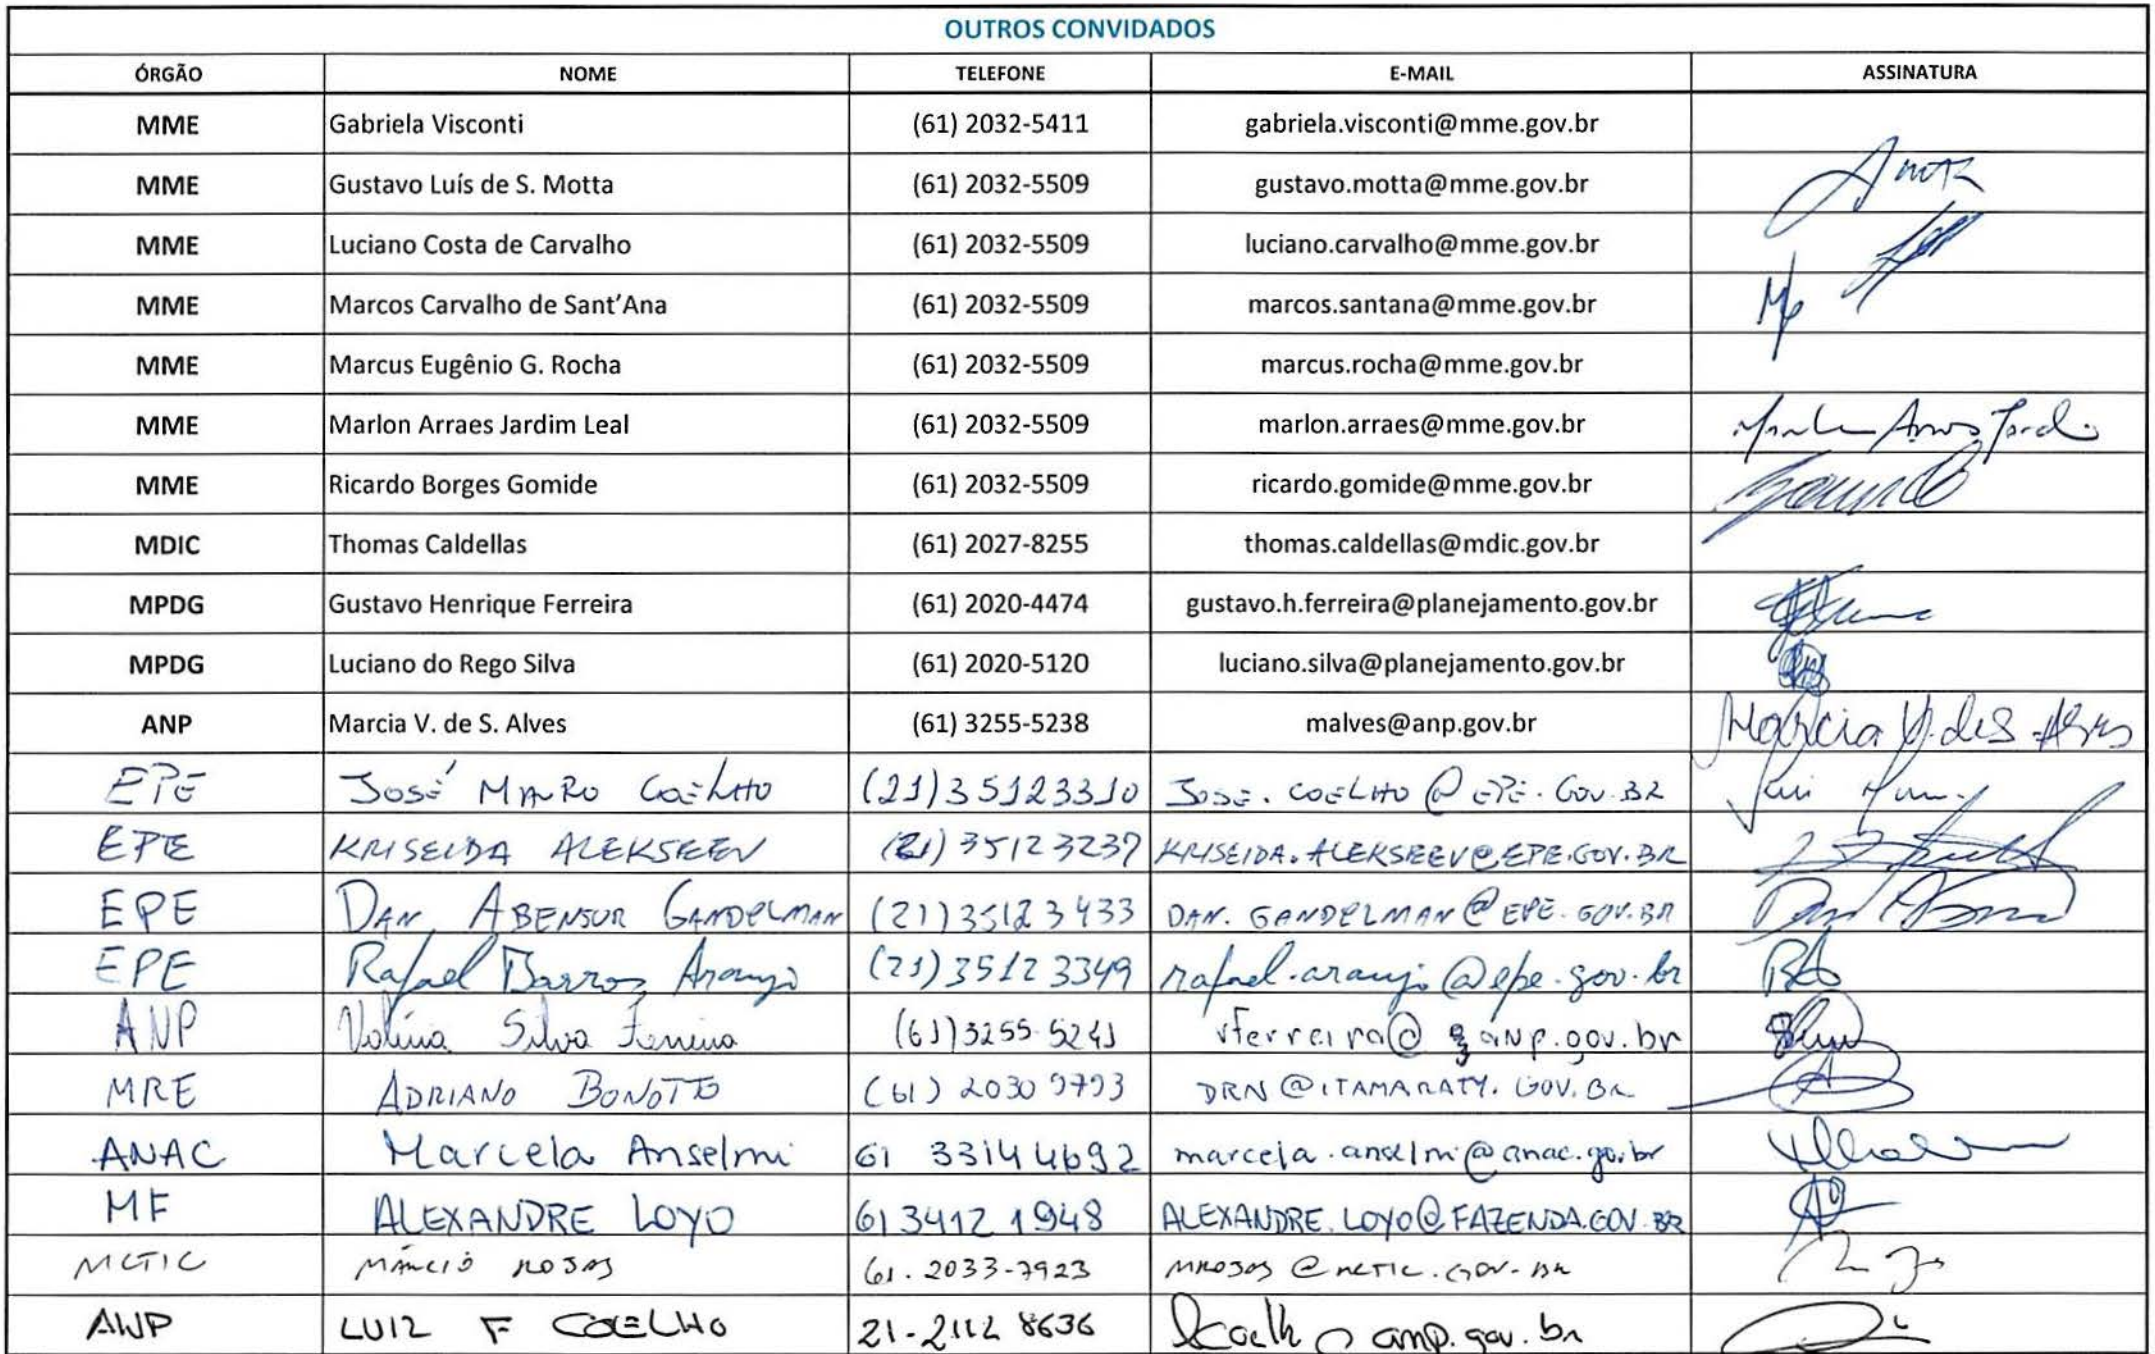 OUTROS CONVIDADOS
ÓRGÃO NOME TELEFONE E-MAIL ASSINATURA
MME Gabriela Visconti (61) 2032-5411 gabriela.visconti@mme.gov.br
MME Gustavo Luís de S. Motta (61) 2032-5509 gustavo.motta@mme.gov.br
MME Luciano Costa de Carvalho (61) 2032-5509 luciano.carvalho@mme.gov.br
MME Marcos Carvalho de Sant'Ana (61) 2032-5509 marcos.santana@mme.gov.br
MME Marcus Eugênio G. Rocha (61) 2032-5509 marcus.rocha@mme.gov.br
MME Marlon Arraes Jardim Leal (61) 2032-5509 marlon.arraes@mme.gov.br
MME Ricardo Borges Gomide (61) 2032-5509 ricardo.gomide@mme.gov.br
MDIC Thomas Caldellas (61) 2027-8255 thomas.caldellas@mdic.gov.br
MPDG Gustavo Henrique Ferreira (61) 2020-4474 gustavo.h.ferreira@planejamento.gov.br
MPDG Luciano do Rego Silva (61) 2020-5120 luciano.silva@planejamento.gov.br
ANP Marcia V. de S. Alves (61) 3255-5238 malves@anp.gov.br Marcia V. de S. Alves
EPE José Mauro Coelho (21) 35123310 JOSE.COELHO@EPE.GOV.BR
EPE KRISEIDA ALEKSEEV (21) 35123237 KRISEIDA.ALEKSEEV@EPE.GOV.BR
EPE DAN ABENSUR GANDELMAN (21) 35123433 DAN.GANDELMAN@EPE.GOV.BR
EPE Rafael Barros Araujo (21) 35123349 rafael.araujo@epe.gov.br
ANP Valéria Silva Ferreira (61) 3255-5241 vferreira@anp.gov.br
MRE ADRIANO BONOTTO (61) 2030 9793 DRN@ITAMARATY.GOV.BR
ANAC Marcela Anselmi 61 33144692 marcela.anselmi@anac.gov.br
MF ALEXANDRE LOYO 61 3412 1948 ALEXANDRE.LOYO@FAZENDA.GOV.BR
MCTIC MÁRCIO ROJAS 61.2033-7923 MROJAS@MCTIC.GOV.BR
ANP LUIZ F COELHO 21-2112 8636 lcoelho@anp.gov.br